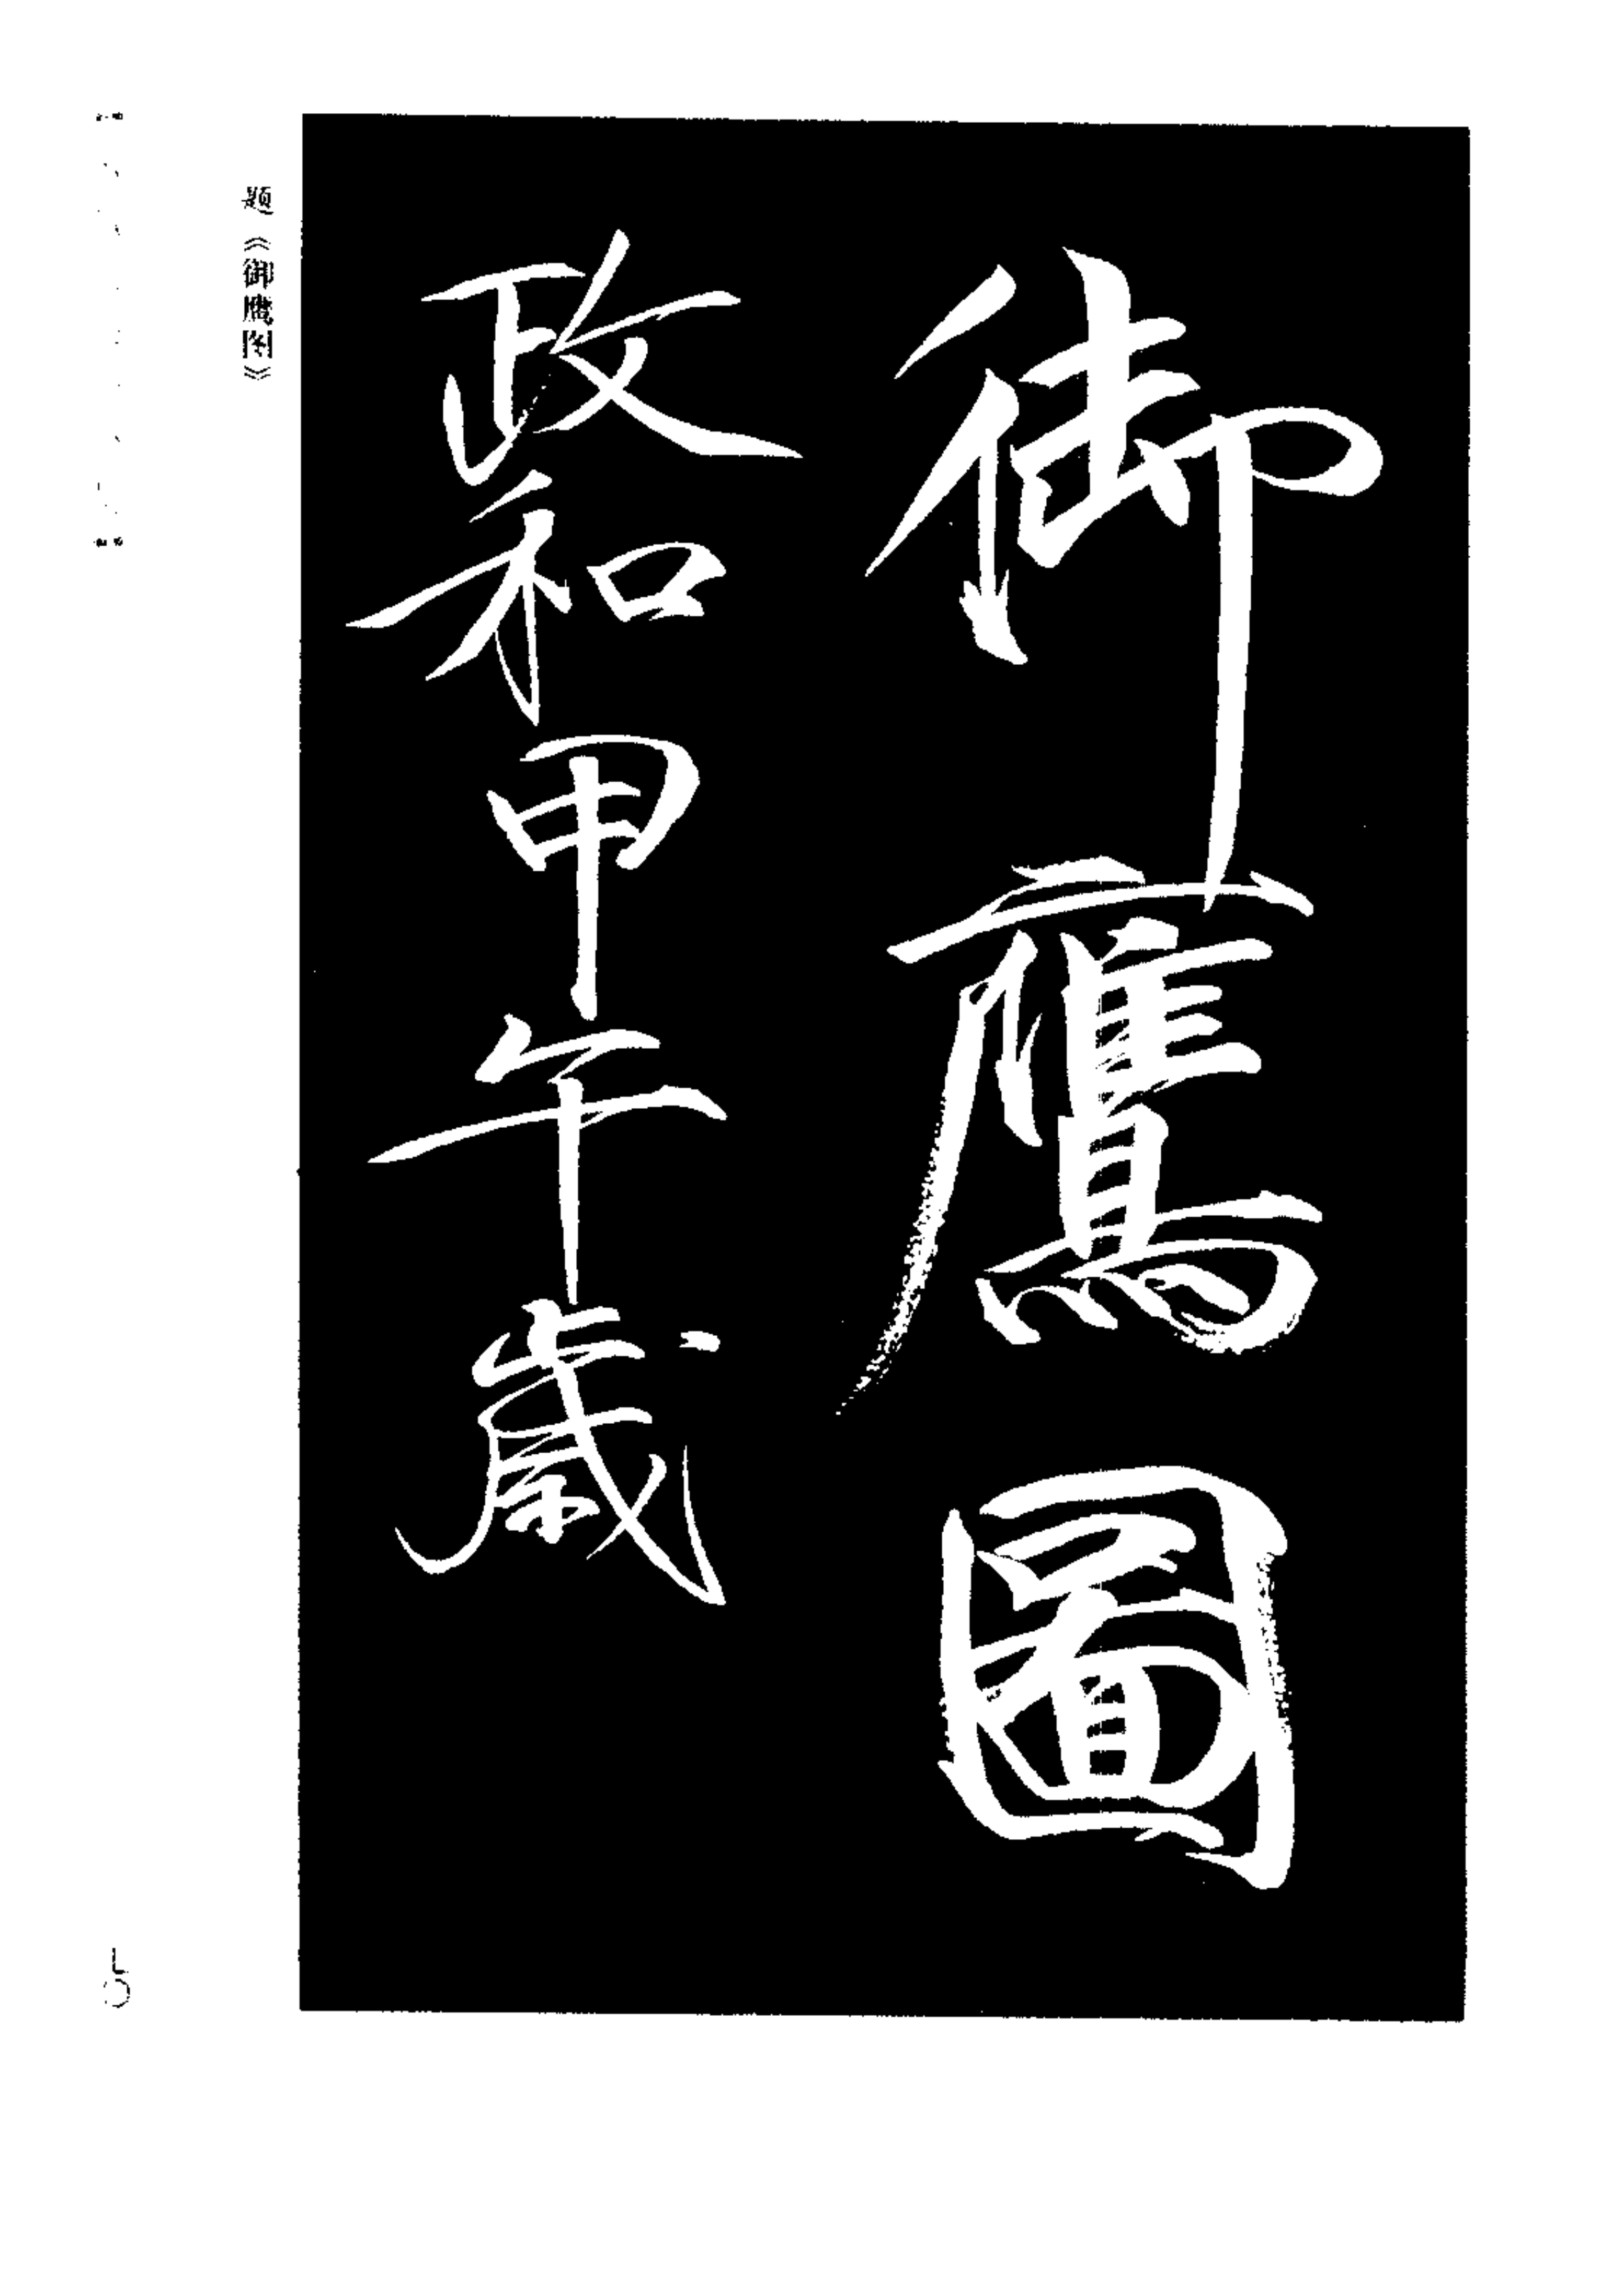 御鷹圖
政和甲午歲
题《御鹰图》